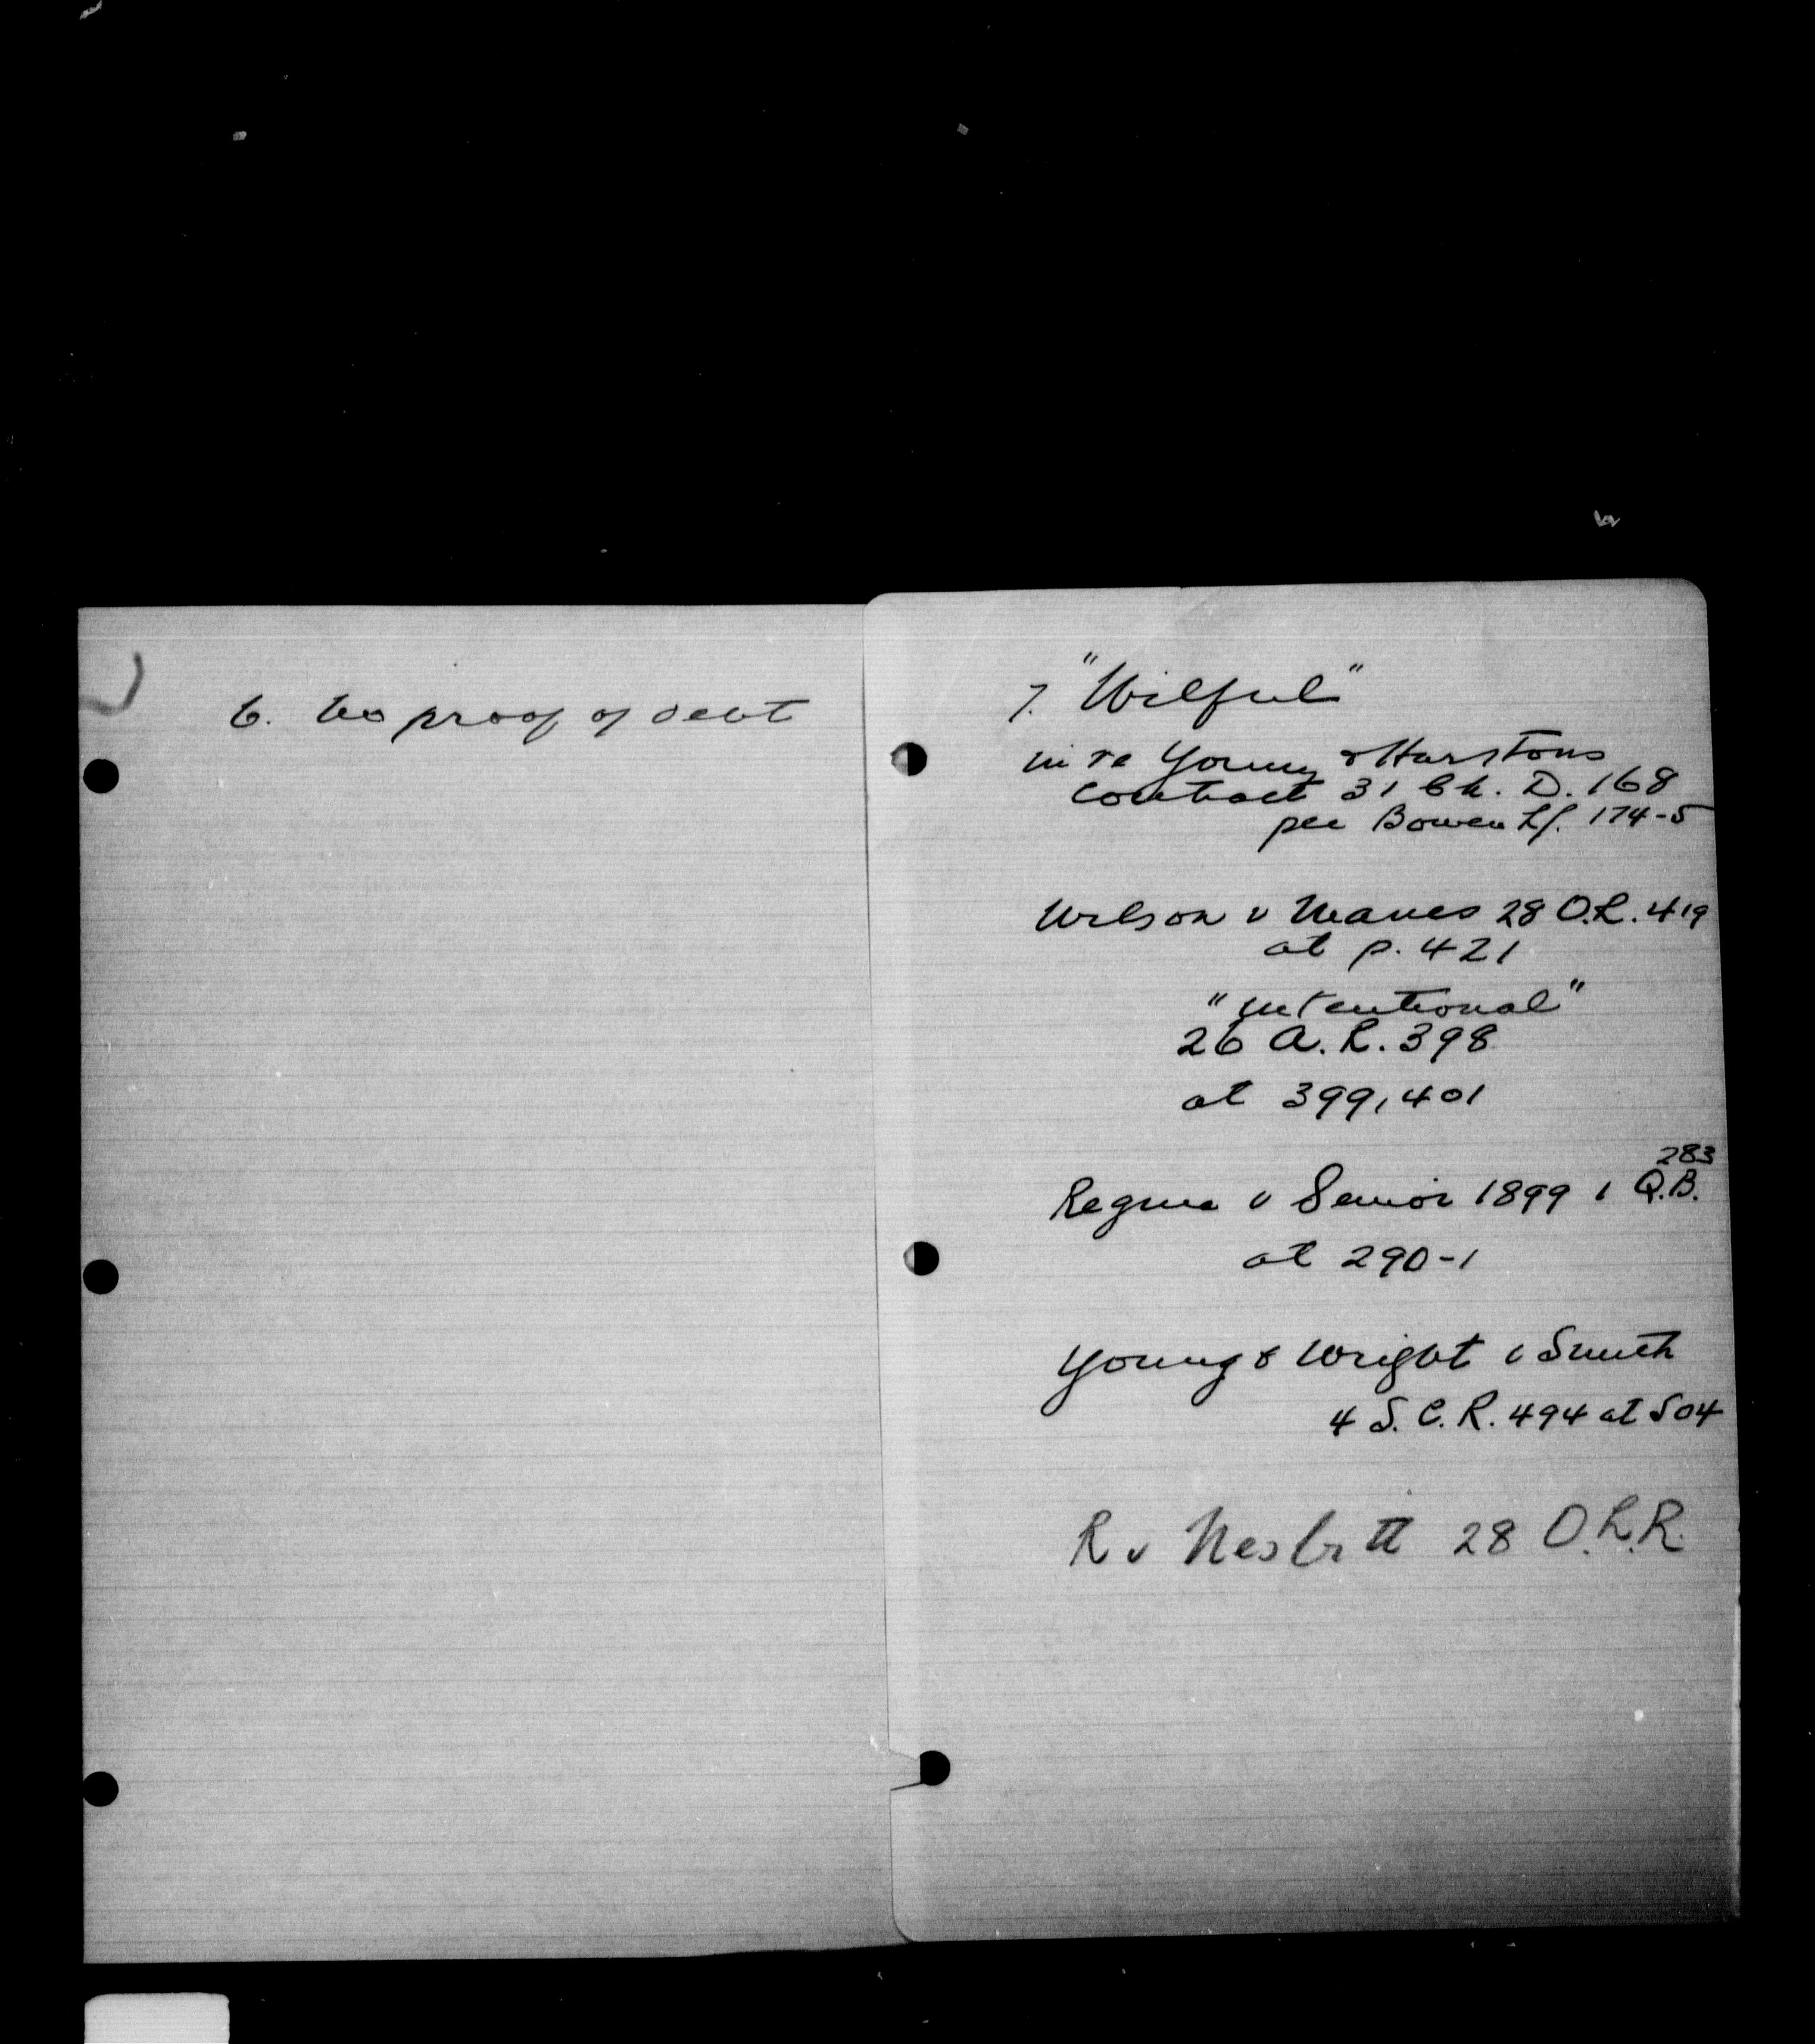 6. No proof of debt
7. "Wilful"
in re Young & Harstons
Contract 31 Ch. D. 168
per Bowen L.J. 174-5
Wilson v Manes 28 O.R. 419
at p. 421
"intentional"
26 A.R. 398
at 399, 401
283
Regina v Senior 1899 1 Q.B.
at 290-1
Young & Wright v Smith
4 S.C.R. 494 at 504
R v Nesbitt 28 O.L.R.